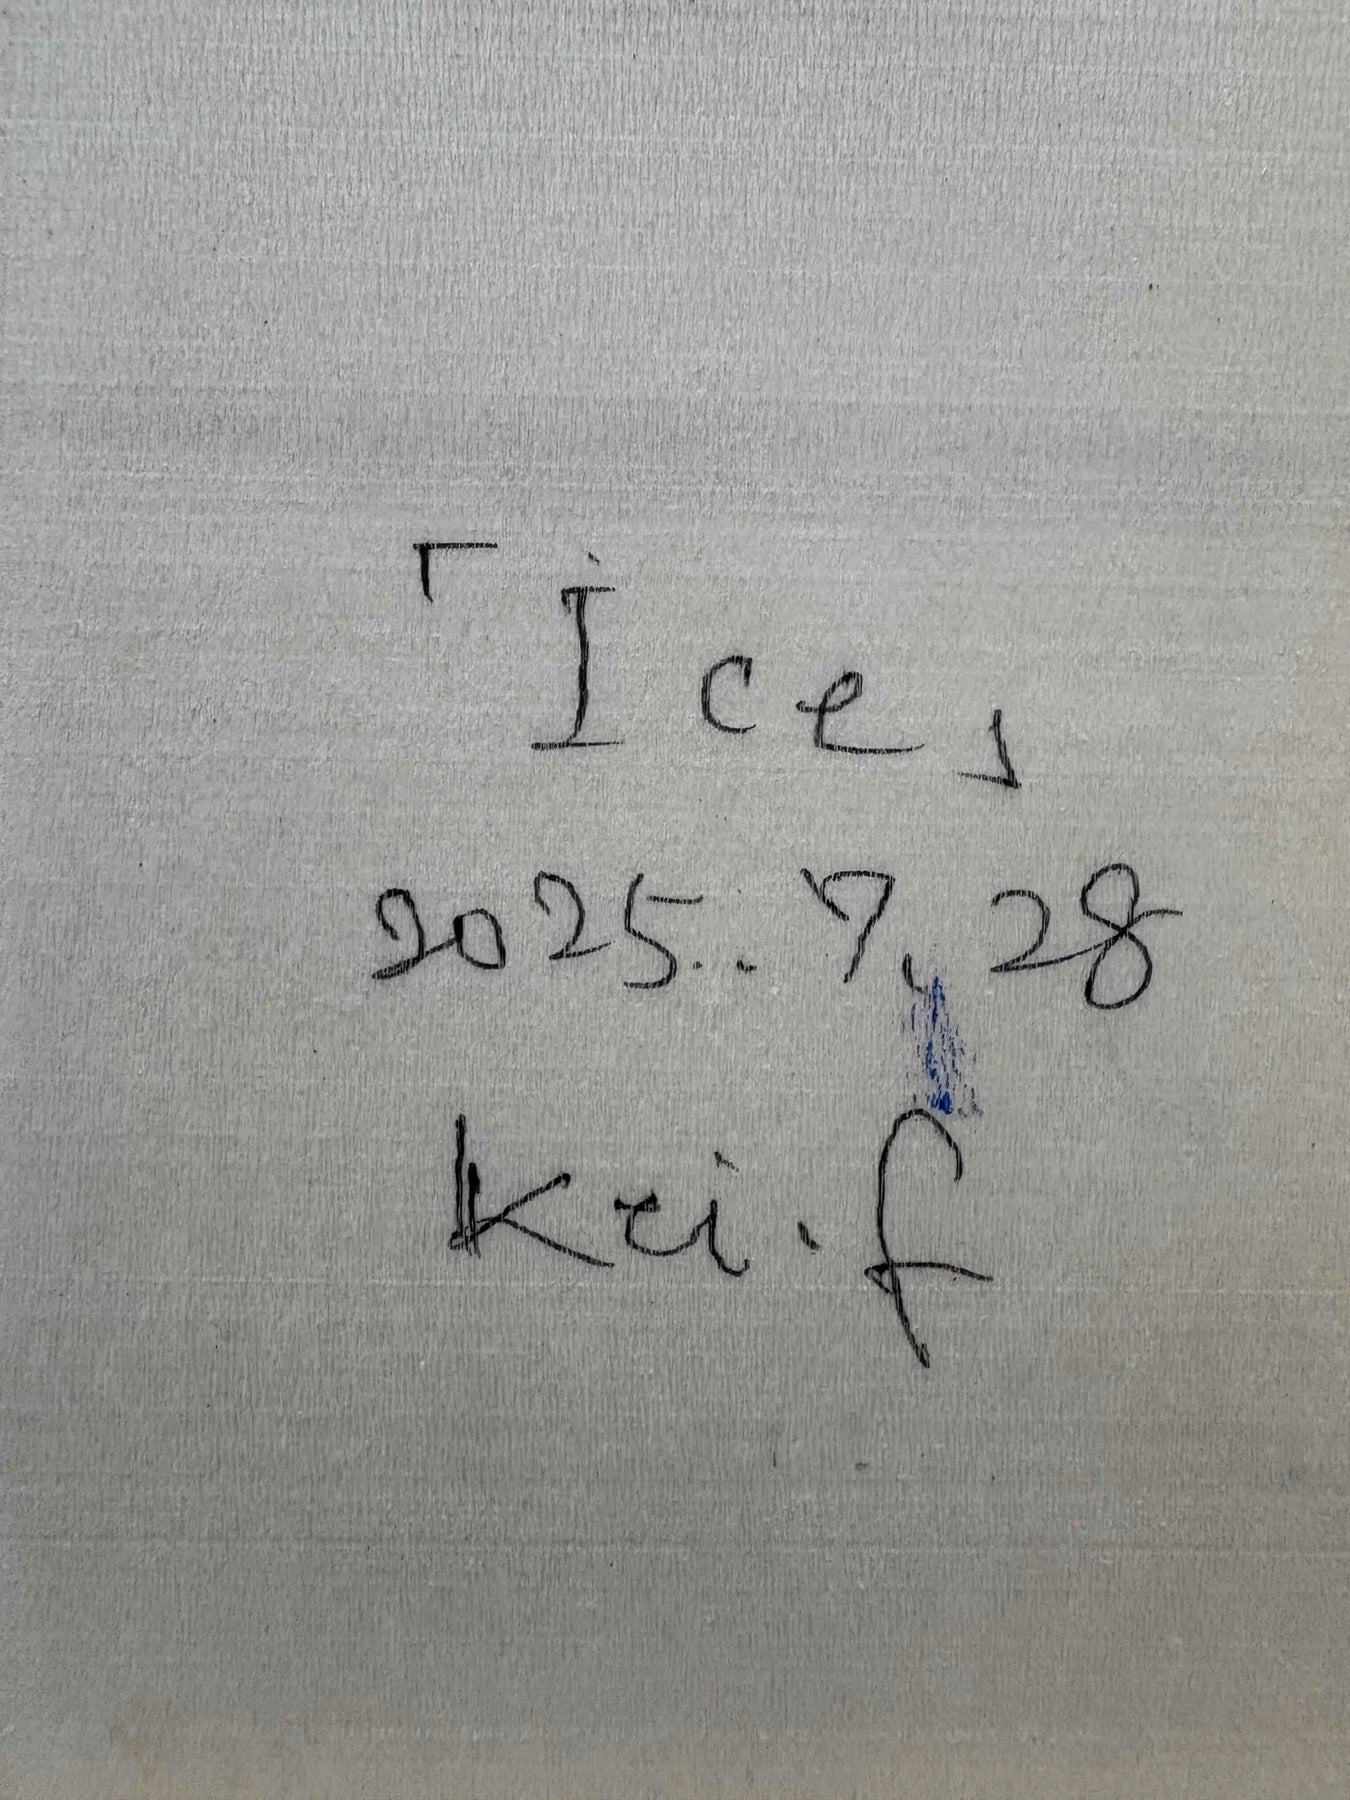 「Ice」
2025..7.28
Kei.f